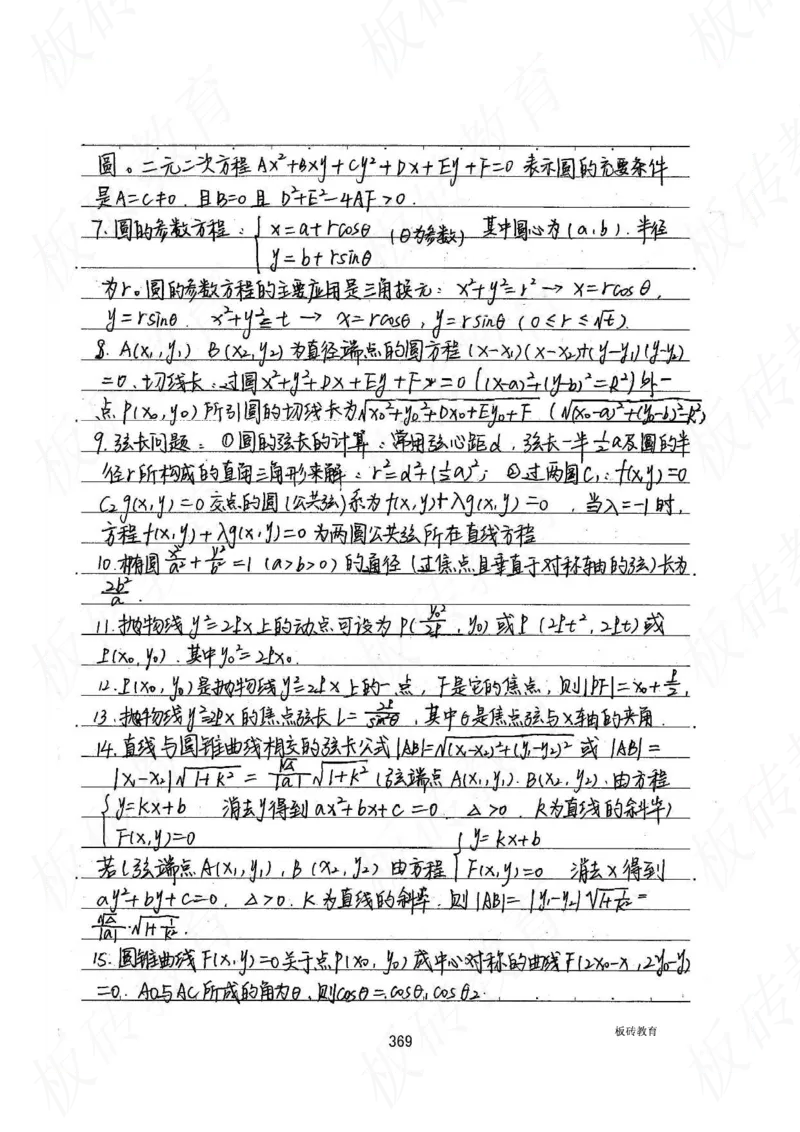 圆。二元二次方程 Ax²+Bxy+Cy²+Dx+Ey+F=0 表示圆的充要条件
是A=C≠0，且B=0且 D²+E²-4AF>0.
7.圆的参数方程：{ x=a+rcosθ (θ为参数) 其中圆心为(a,b).半径
y=b+rsinθ
为r。圆的参数方程的主要应用是三角换元：x²+y²=r² → x=rcosθ,
y=rsinθ. x²+y²≤t → x=rcosθ, y=rsinθ (0≤r≤√t).
8. A(x₁,y₁) B(x₂,y₂)为直径端点的圆方程(x-x₁)(x-x₂)+(y-y₁)(y-y₂)
=0.切线长：过圆x²+y²+Dx+Ey+F=0 ((x-a)²+(y-b)²=R²)外一
点P(x₀,y₀)所引圆的切线长为√x₀²+y₀²+Dx₀+Ey₀+F (√(x₀-a)²+(y₀-b)²-R²)
9.弦长问题：①圆的弦长的计算：常用弦心距d，弦长一半½a及圆的半
径r所构成的直角三角形来解：r²=d²+(½a)²；②过两圆C₁：f(x,y)=0
C₂g(x,y)=0交点的圆(公共弦)系为f(x,y)+λg(x,y)=0，当λ=-1时,
方程f(x,y)+λg(x,y)=0为两圆公共弦所在直线方程
10.椭圆x²/a²+y²/b²=1 (a>b>0)的通径(过焦点且垂直于对称轴的弦)长为
2b²/a.
11.抛物线y²=2px上的动点可设为P(y₀²/2p,y₀)或P(2pt²,2pt)或
P(x₀,y₀).其中y₀²=2px₀.
12.P(x₀,y₀)是抛物线y²=2px上的一点，F是它的焦点，则|PF|=x₀+p/2,
13.抛物线y²=2px的焦点弦长l=2p/sin²θ，其中θ是焦点弦与x轴的夹角.
14.直线与圆锥曲线相交的弦长公式|AB|=√(x₁-x₂)²+(y₁-y₂)² 或 |AB|=
|x₁-x₂|√1+k² = √Δ/|a| √1+k² (弦端点A(x₁,y₁).B(x₂,y₂).由方程
{ y=kx+b 消去y得到ax²+bx+c=0. Δ>0. k为直线的斜率)
F(x,y)=0 { y=kx+b
若(弦端点A(x₁,y₁),B(x₂,y₂)由方程 F(x,y)=0 消去x得到
ay²+by+c=0. Δ>0. k为直线的斜率.则|AB|=|y₁-y₂|√1+1/k² =
√Δ/|a|·√1+1/k².
15.圆锥曲线F(x,y)=0关于点P(x₀,y₀)成中心对称的曲线F(2x₀-x,2y₀-y)
=0. AO与AC所成的角为θ.则cosθ=cosθ₁cosθ₂.
板砖教育
369